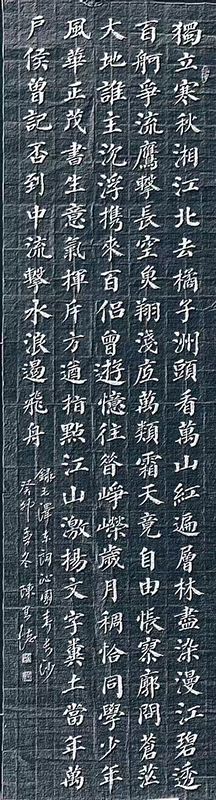 獨立寒秋湘江北去橘子洲頭看萬山紅遍層林盡染漫江碧透
百舸爭流鷹擊長空魚翔淺底萬類霜天竟自由悵寥廓問蒼茫
大地誰主沉浮携來百侶曾遊憶往昔崢嶸歲月稠恰同學少年
風華正茂書生意氣揮斥方遒指點江山激揚文字糞土當年萬
戶侯曾記否到中流擊水浪遏飛舟
錄毛澤東詞沁園春長沙
癸卯孟冬 陳